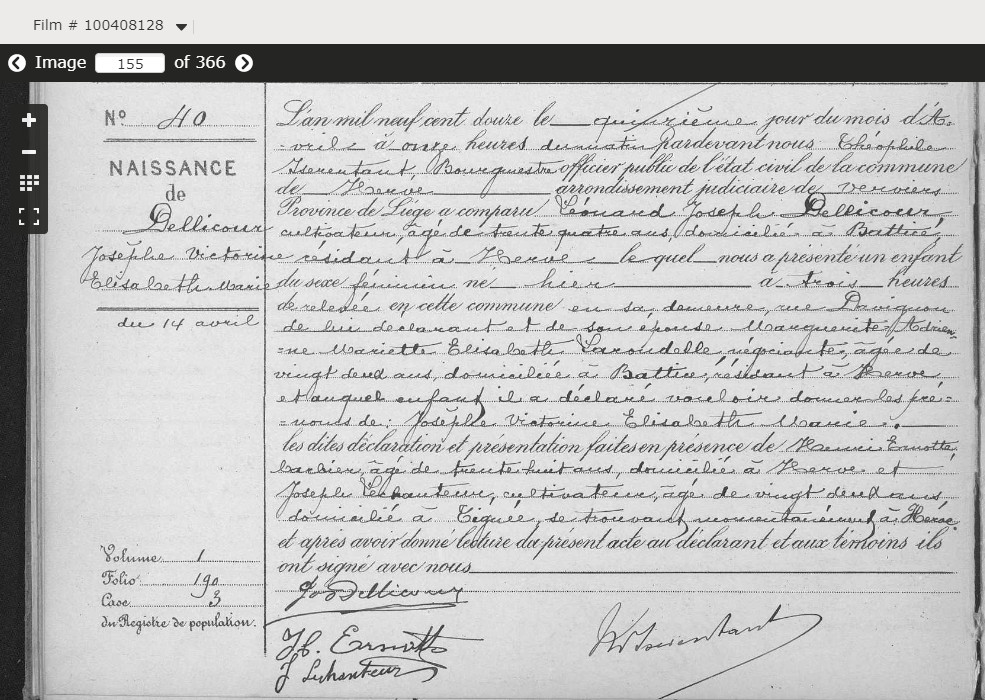 Film # 100408128
Image 155 of 366
Nº 40
NAISSANCE
de
Dellicour
Josèphe Victorine
Elisabeth Marie
du 14 avril
L'an mil neuf cent douze le quinzième jour du mois d'A-
-vril à onze heures du matin pardevant nous Théophile
Iserentant, Bourgmestre officier public de l'état civil de la commune
de Herve arrondissement judiciaire de Verviers
Province de Liége a comparu Léonard Joseph Dellicour,
cultivateur, âgé de trente quatre ans, domicilié à Battice,
résidant à Herve lequel nous a présenté un enfant
du sexe féminin né hier à trois heures
de relevée en cette commune en sa demeure, rue
de lui déclarant et de son épouse Marguerite Adrien-
-ne Mariette Elisabeth Larondelle, négociante, âgée de
vingt deux ans, domiciliée à Battice, résidant à Herve
et auquel enfant il a déclaré vouloir donner les pré-
-noms de: Josèphe Victorine Elisabeth Marie.
les dites déclaration et présentation faites en présence de Henri Ernotte,
barbier, âgé de trente huit ans, domicilié à Herve et
Joseph Lechanteur, cultivateur, âgé de vingt deux ans,
domicilié à Tignée, se trouvant momentanément à Herve
et après avoir donné lecture du présent acte au déclarant et aux témoins ils
ont signé avec nous
Volume 1
Folio 190
Case 3
du Registre de population.
Jos Dellicour
H. Ernotte
J Lechanteur
Iserentant